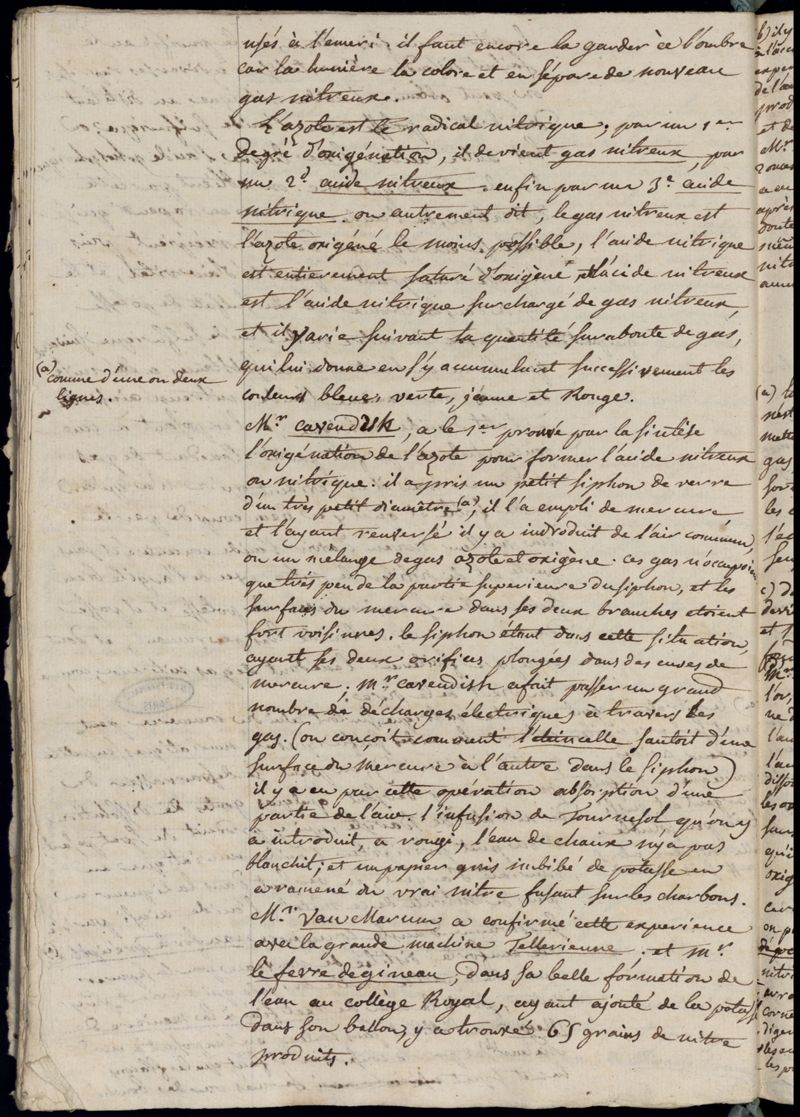 usés à l'emeri : il faut encore la garder à l'ombre
car la lumière la colore et en sépare de nouveau
gas nitreux.
L'azote est le radical nitrique ; par un 1er
degré d'oxigénation, il devient gas nitreux, par
un 2d acide nitreux. enfin par un 3e acide
nitrique. ou autrement dit, le gas nitreux est
l'azote oxigéné le moins possible, l'acide nitrique
est entierement saturé d'oxigène et l'acide nitreux
est l'acide nitrique surchargé de gas nitreux,
et il varie suivant la quantité surabonte de gas,
qui lui donne en s'y accumulant successivement les
couleurs bleues, verte, jaune et Rouge.
(a) comme d'une ou deux
lignes.
Mr. Cavendish, a le 1er prouvé par la sintèse
l'oxigénation de l'azote pour former l'acide nitreux
ou nitrique : il a pris un petit siphon de verre
d'un très petit diamètre (a), il l'a empli de mercure
et l'ayant renversé il y a introduit de l'air commun,
ou un mélange de gas azote et oxigène. ces gas n'occupoient
que très peu de la partie superieure du siphon, et les
surfaces du mercure dans ses deux branches etoient
fort voisinnes. le siphon étant dans cette situation,
ayant ses deux orifices plongées dans des cuves de
mercure ; mr. cavendish a fait passer un grand
nombre de décharges électriques à travers les
gas. (on conçoit comment l'étincelle sautoit d'une
surface du mercure à l'autre dans le siphon)
il y a eu par cette operation absorption d'une
partie de l'air. l'infusion de Tournesol qu'on y
a introduit, a rougi, l'eau de chaux n'y a pas
blanchit ; et un papier gris imbibé de potasse en
a ramené du vrai nitre fusant sur les charbons.
Mr. Van Marum a confirmé cette experience
avec la grande machine Tellerienne. et mr.
le fevre de gineau, dans sa belle formation de
l'eau au collège Royal, ayant ajouté de la potasse
dans son ballon, y a trouvé 65 grains de nitre
produits.